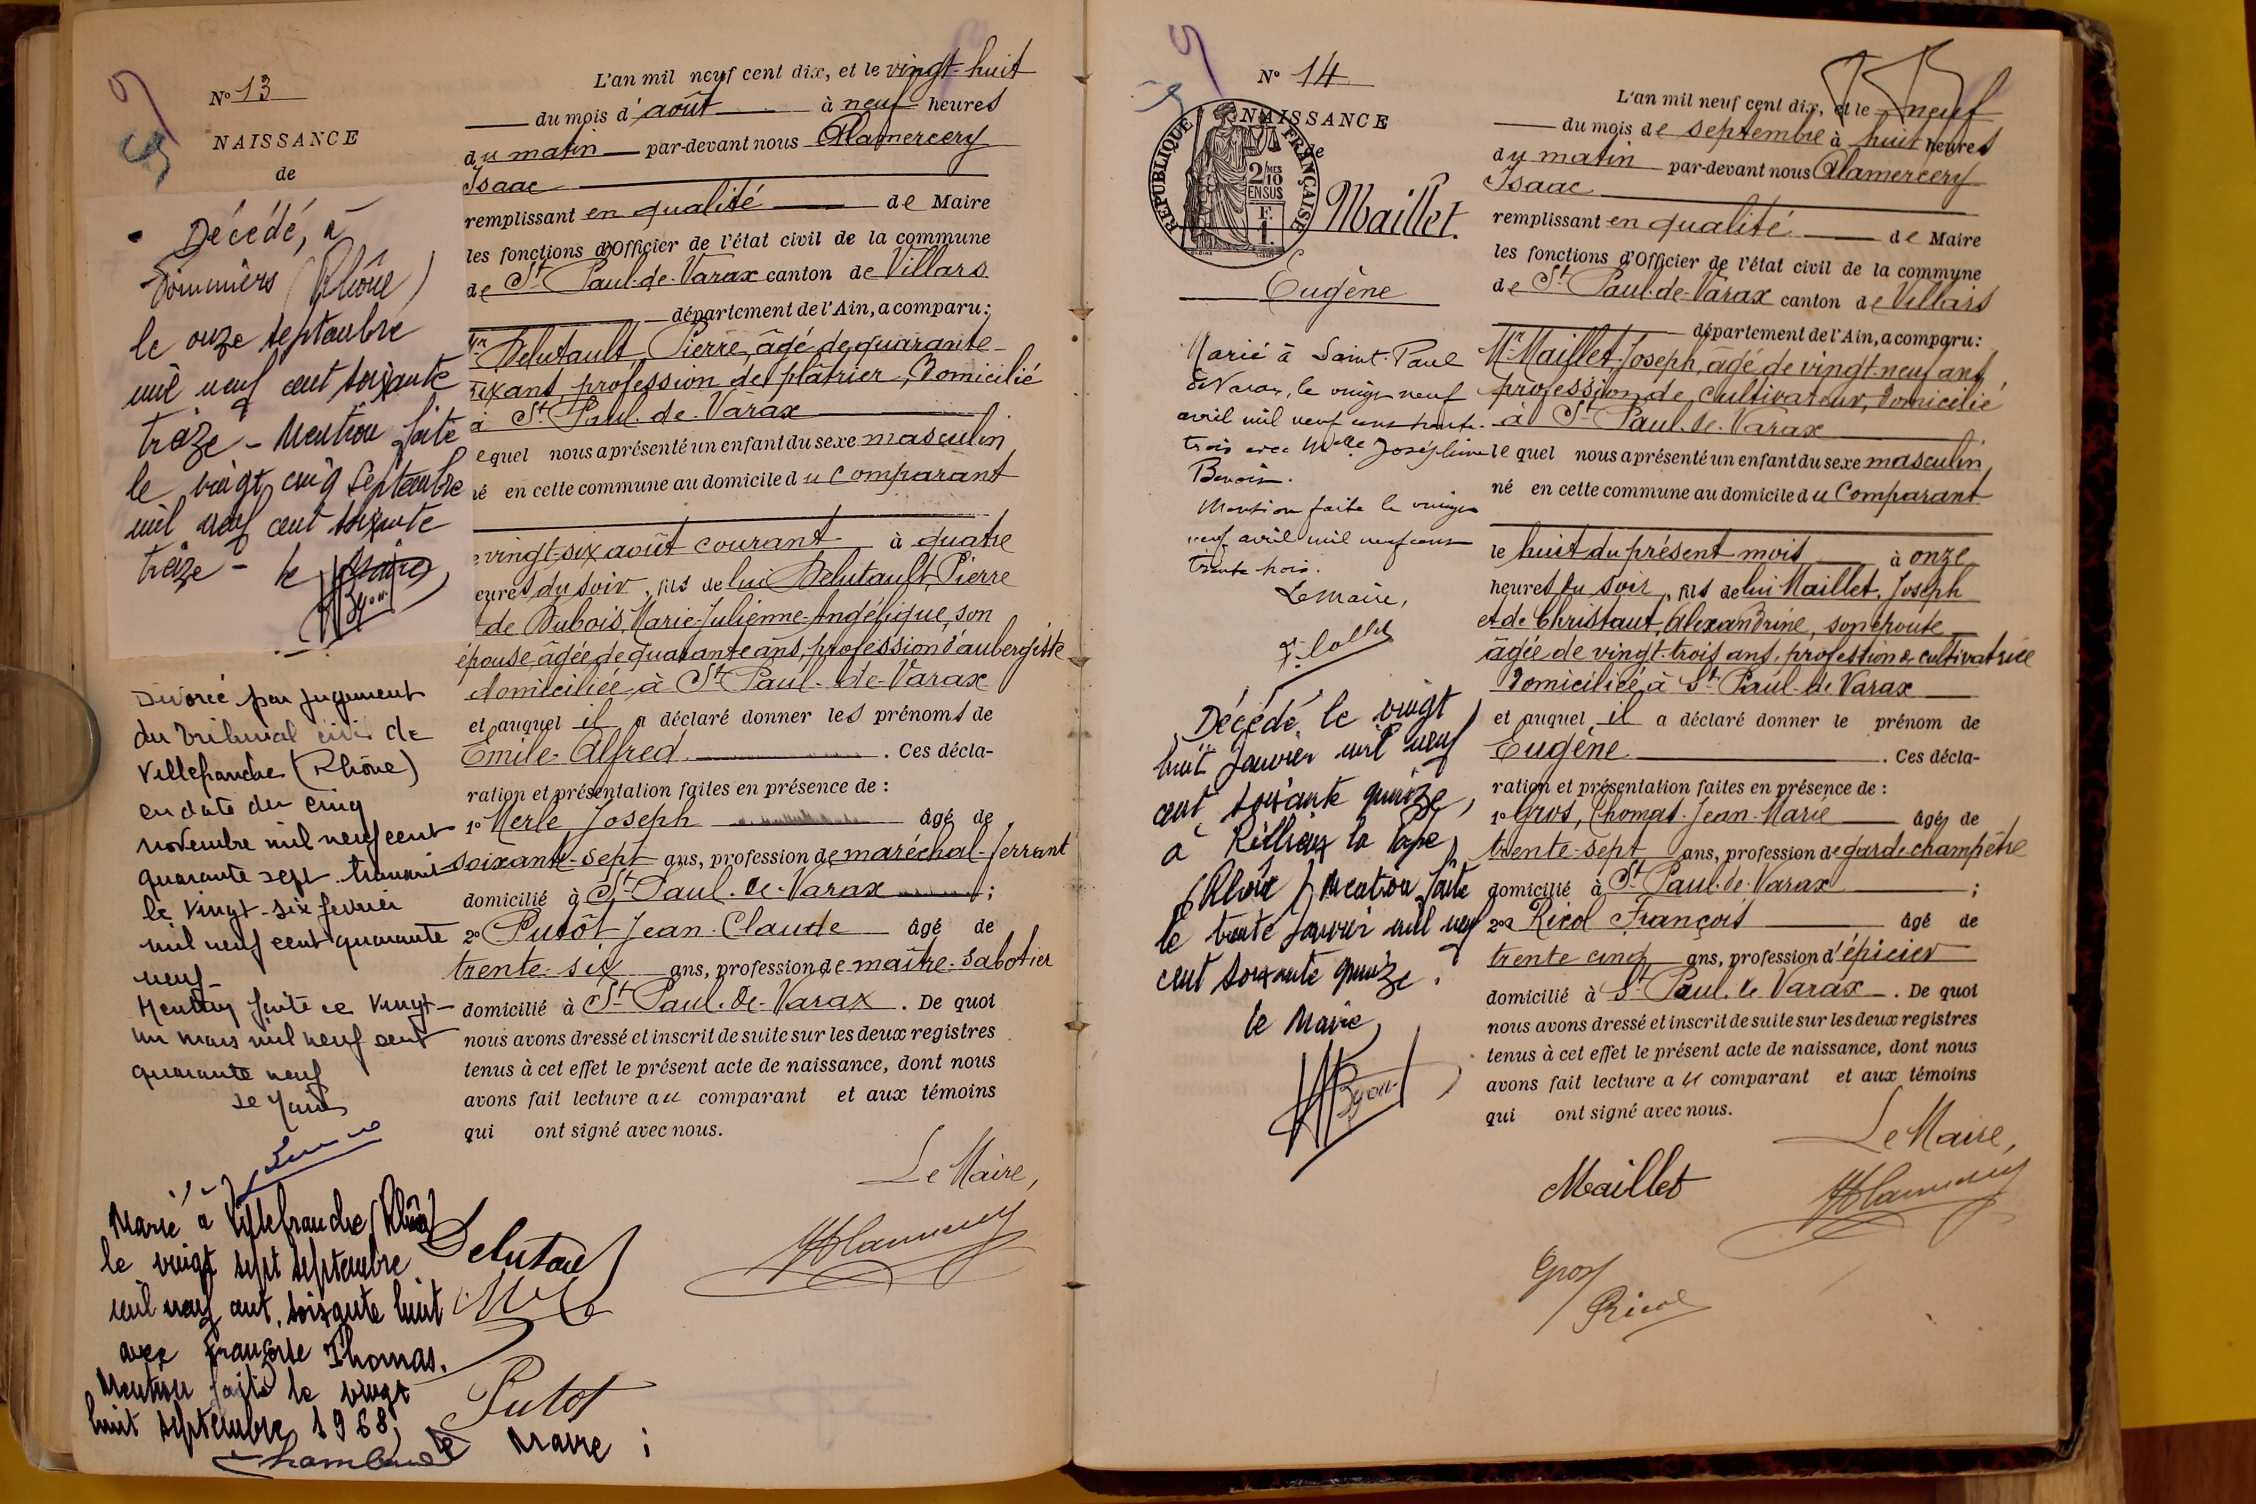 N° 13
NAISSANCE
de
Décédé, à
(Rhône)
le onze septembre
mil neuf cent soixante
treize - Mention faite
le vingt cinq septembre
mil neuf cent soixante
treize - le Maire
Divorcé par jugement
du Tribunal civil de
Villefranche (Rhône)
en date du cinq
novembre mil neuf cent
quarante sept transcrit
le vingt-six février
mil neuf cent quarante
neuf-
Mention faite ce vingt-
un mars mil neuf cent
quarante neuf
Le Maire
Marié à Villefranche (Rhône)
le vingt sept septembre
mil neuf cent soixante huit
avec Françoise Thomas.
Mention faite le vingt
huit septembre 1968,
le Maire ;
L'an mil neuf cent dix, et le vingt-huit
du mois d'août à neuf heures
du matin par-devant nous Alamercery
Isaac
remplissant en qualité de Maire
les fonctions d'Officier de l'état civil de la commune
de St Paul-de-Varax canton de Villars
département de l'Ain, a comparu:
Mr Delutault Pierre, âgé de quarante
six ans, profession de plâtrier, Domicilié
à St Paul-de-Varax
equel nous a présenté un enfant du sexe masculin
né en cette commune au domicile du comparant
e vingt-six août courant à quatre
eures du soir, fils de lui Delutault, Pierre
t de Dubois, Marie-Julienne-Angélique, son
épouse âgée de quarante ans, profession d'aubergiste
domiciliée à St Paul-de-Varax
et auquel il a déclaré donner les prénoms de
Emile-Alfred . Ces décla-
ration et présentation faites en présence de :
1° Merle Joseph âgé de
soixante-sept ans, profession de maréchal-ferrant
domicilié à St Paul-de-Varax ;
2° Putôt Jean-Claude âgé de
trente-six ans, profession de maître-sabotier
domicilié à St Paul-de-Varax . De quoi
nous avons dressé et inscrit de suite sur les deux registres
tenus à cet effet le présent acte de naissance, dont nous
avons fait lecture au comparant et aux témoins
qui ont signé avec nous.
Le Maire,
Delutault
Putot
N° 14
NAISSANCE
de
RÉPUBLIQUE FRANÇAISE
2/10 MES
EN SUS
Maillet.
Eugène
Marié à Saint-Paul
de Varax, le vingt neuf
avril mil neuf cent trente-
trois avec Melle Joséphine
Mention faite le vingt
neuf avril mil neuf cent
trente trois.
Le maire,
Décédé le vingt
huit Janvier mil neuf
cent soixante quinze,
à Rillieux la Pape,
(Rhône) Mention faite
le trente Janvier mil neuf
cent soixante quinze.
le Maire,
L'an mil neuf cent dix, et le neuf
du mois de septembre à huit heures
du matin par-devant nous Alamercery
Isaac
remplissant en qualité de Maire
les fonctions d'Officier de l'état civil de la commune
de St Paul-de-Varax canton de Villars
département de l'Ain, a comparu:
Mr Maillet Joseph, âgé de vingt-neuf ans
profession de cultivateur, domicilié
à St Paul-de-Varax
le quel nous a présenté un enfant du sexe masculin
né en cette commune au domicile du comparant
le huit du présent mois à onze
heures du soir, fils de lui Maillet, Joseph
et de Christaut, Alexandrine, son épouse
âgée de vingt-trois ans, profession de cultivatrice
Domiciliée à St Paul-de-Varax
et auquel il a déclaré donner le prénom de
Eugène . Ces décla-
ration et présentation faites en présence de :
1° Gros, Thomas-Jean-Marie âgé de
trente-sept ans, profession de garde champêtre
domicilié à St Paul-de-Varax ;
2° Ricol François âgé de
trente cinq ans, profession d'épicier
domicilié à St Paul de Varax . De quoi
nous avons dressé et inscrit de suite sur les deux registres
tenus à cet effet le présent acte de naissance, dont nous
avons fait lecture au comparant et aux témoins
qui ont signé avec nous.
Le Maire,
Maillet
Gros
Ricol